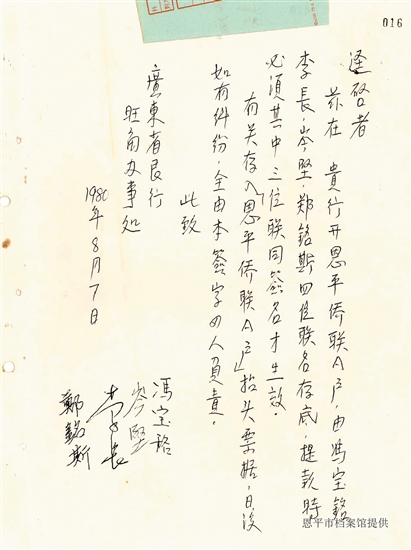 016
迳啓者
兹在 貴行开恩平侨联A户，由馮宝銘
李長，岑坚，郑銘斯四位联名存底，提款時
必須其中三位联同簽名才生效．
有关存入「恩平侨联A户」抬头票据，日後
如有糾纷，全由本簽字四人負責，
此致
廣東省艮行
旺角办事处
1980年8月7日
馮宝銘
岑堅
李長
鄭銘斯
恩平市档案馆提供